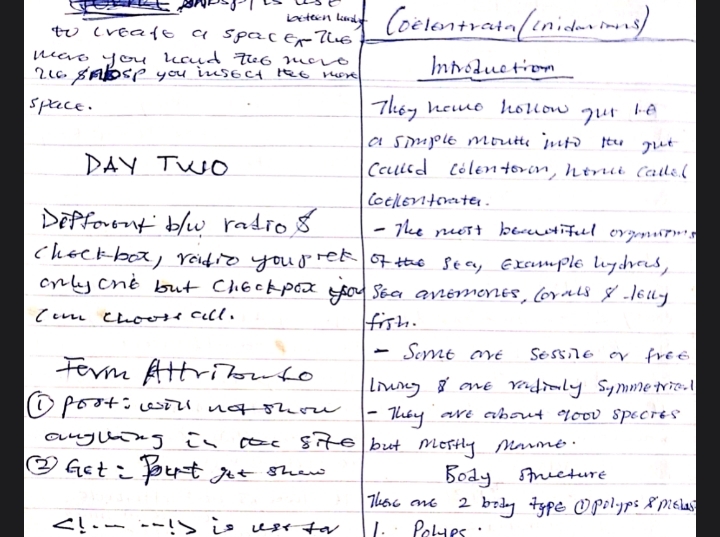 is use
between words
to create a space. The
more you hand the more
the &NBSP you insert the more
space.
DAY TWO
Different b/w radio &
Checkbox, radio you
only one but Checkbox you
can choose all.
Form Attribute
① post: will not show
anything in the site
② Get = get show
<!-- --!> is use for
Coelentrata (Cnidarians)
Introduction
They have hollow gut i.e
a simple mouth into the gut
called Colenteron, hence called
Coelenterates.
- The most beautiful organisms
of the sea, Example hydras,
Sea anemones, Corals & Jelly
fish.
- Some are Sessile or free
living & are radially Symmetrical
- They are about 9000 species
but mostly Marine.
Body Structure
There are 2 body type ① polyps &
1. Polyps: